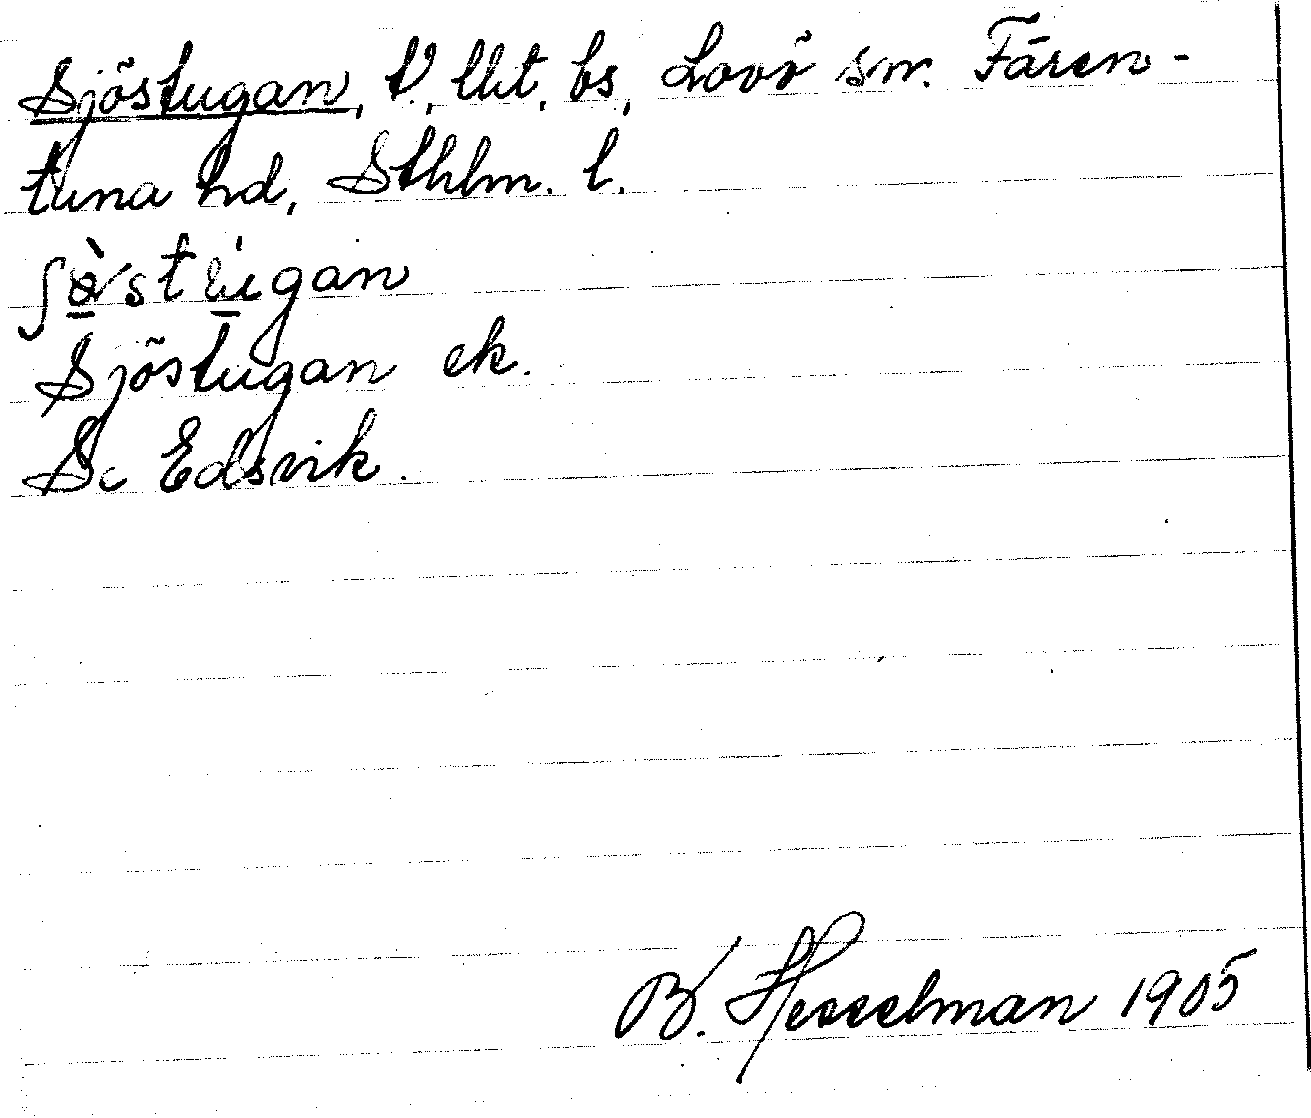 Sjöstugan, t., llit. bs, Lovö sn. Fären-
tuna hd, Sthlm. l.
ʃø̀stu̇gan
Sjöstugan ek.
Se Edsvik.
B. Hesselman 1905